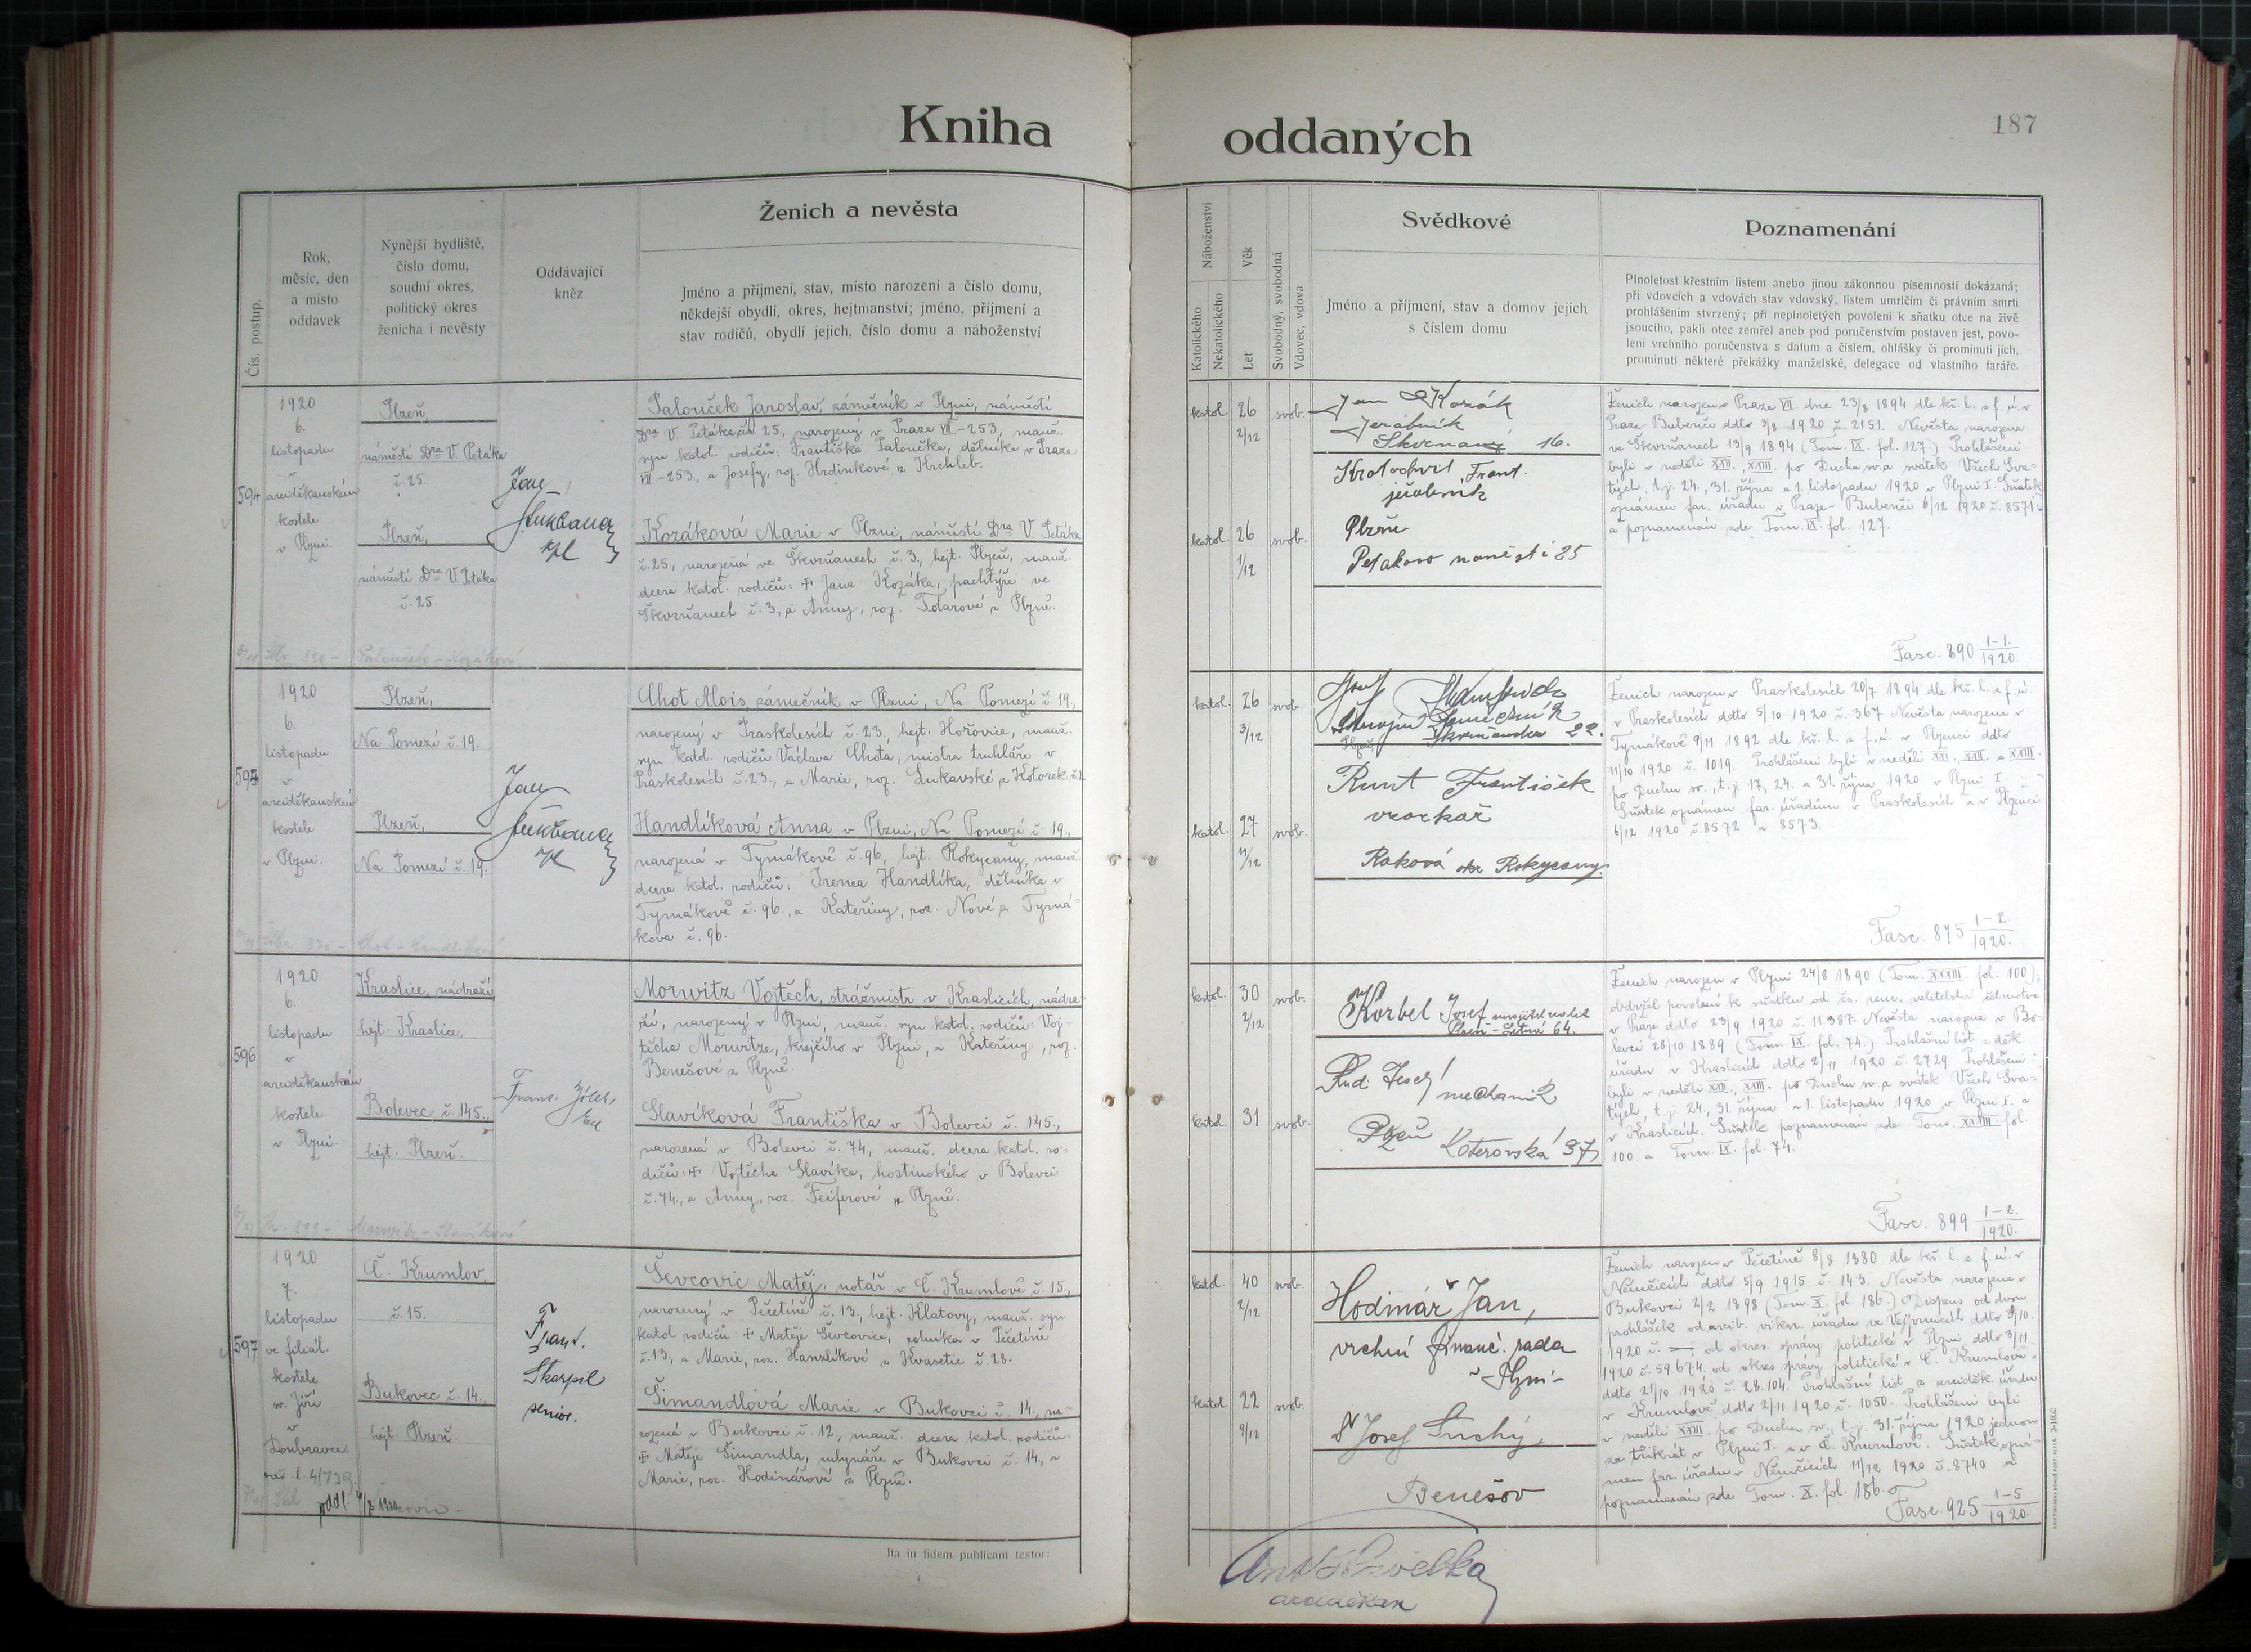 Kniha
oddaných
187
Čís. postup.
Rok,
měsíc, den
a místo
oddavek
Nynější bydliště,
číslo domu,
soudní okres,
politický okres
ženicha i nevěsty
Oddávající
kněz
Ženich a nevěsta
Jméno a příjmení, stav, místo narození a číslo domu,
někdejší obydlí, okres, hejtmanství; jméno, příjmení a
stav rodičů, obydlí jejich, číslo domu a náboženství
Náboženství
Katolického
Nekatolického
Věk
Let
Svobodný, svobodná
Vdovec, vdova
Svědkové
Jméno a příjmení, stav a domov jejich
s číslem domu
Poznamenání
Plnoletost křestním listem anebo jinou zákonnou písemností dokázaná;
při vdovcích a vdovách stav vdovský, listem umrlčím či právním smrti
prohlášením stvrzený; při neplnoletých povolení k sňatku otce na živě
jsoucího, pakli otec zemřel aneb pod poručenstvím postaven jest, povo-
lení vrchního poručenstva s datum a číslem, ohlášky či prominutí jich,
prominutí některé překážky manželské, delegace od vlastního faráře.
594
1920
6.
listopadu
v
arciděkanském
kostele
v Plzni.
Plzeň,
náměstí Dra V. Petáka
č. 25.
Plzeň,
náměstí Dra V. Petáka
č. 25.
Jan
Palouček Jaroslav, zámečník v Plzni, náměstí
Dra V. Petáka č. 25, narozený v Praze VII-253, manž.
syn katol. rodičů: Františka Paloučka, dělníka v Praze
VII-253, a Josefy, roz. Hrdinkové z Krchleb.
Kozáková Marie v Plzni, náměstí Dra V. Petáka
č. 25, narozená ve Škvrňanech č. 3, hejt. Plzeň, manž.
dcera katol. rodičů: + Jana Kozáka, pachtýře ve
Škvrňanech č. 3, a Anny, roz. Tolarové z Plzně.
katol. 26 2/12 svob.
katol. 26 1/12 svob.
Jan Kozák
Jeřábník
Skvrnany 16.
Kratochvil Frant.
jeřabník
Plzeň
Petakovo naměsti 25
Ženich narozen v Praze VII. dne 23/8 1894 dle kř. l. z f. ú. v
Praze-Bubenči ddto 3/8 1920 č. 2151. Nevěsta narozena
ve Škvrňanech 13/9 1894 (Tom. IX. fol. 127.) Prohlášeni
byli v neděli XXII., XXIII. po Duchu sv. a svátek Všech Sva-
tých, t. j. 24., 31. října a 1. listopadu 1920 v Plzni I. Sňatek
oznámen far. úřadu v Praze-Bubenči 6/12 1920 č. 8571
a poznamenán zde Tom. IX. fol. 127.
Fasc. 890 1-1./1920.
595
1920
6.
listopadu
v
arciděkanském
kostele
v Plzni.
Plzeň,
Na Pomezí č. 19.
Plzeň,
Na Pomezí č. 19.
Jan
Chot Alois, zámečník v Plzni, Na Pomezí č. 19.,
narozený v Praskolesích č. 23., hejt. Hořovice, manž.
syn katol. rodičů Václava Chota, mistra truhláře v
Praskolesích č. 23., a Marie, roz. Lukavské z Kotorek č. 1.
Handlíková Anna v Plzni, Na Pomezí č. 19.,
narozená v Tymákově č. 96, hejt. Rokycany, manž.
dcera katol. rodičů: Irenea Handlíka, dělníka v
Tymákově č. 96., a Kateřiny, roz. Nové z Tymá-
kova č. 96.
katol. 26 3/12 svob.
katol. 27 11/12 svob.
Josef
Plzeň, 22.
Runt František
vzorkař
Raková okr Rokycany.
Ženich narozen v Praskolesích 20/7 1894 dle kř. l. z f. ú.
v Praskolesích ddto 5/10 1920 č. 367. Nevěsta narozena v
Tymákově 9/11 1892 dle kř. l. z f. ú. v Plzenci ddto
11/10 1920 č. 1019. Prohlášeni byli v neděli XXI., XXII. a XXIII.
po Duchu sv., t. j. 17., 24. a 31. října 1920 v Plzni I.
Sňatek oznámen far. úřadům v Praskolesích a v Plzenci
6/12 1920 č. 8572 a 8573.
Fasc. 875 1-2./1920.
596
1920
6.
listopadu
v
arciděkanském
kostele
v Plzni.
Kraslice, nádraží
hejt. Kraslice.
Bolevec č. 145.,
hejt. Plzeň.
Morwitz Vojtěch, strážmistr v Kraslicích, nádra-
ží, narozený v Plzni, manž. syn katol. rodičů: Voj-
těcha Morwitze, krejčího v Plzni, a Kateřiny, roz.
Benešové z Plzně.
Slavíková Františka v Bolevci č. 145.,
narozená v Bolevci č. 74, manž. dcera katol. ro-
dičů: + Vojtěcha Slavíka, hostinského v Bolevci
č. 74., a Anny, roz. Feiferové z Plzně.
katol. 30 2/12 svob.
katol. 31 svob.
Körbel Josef
Plzeň - Letná 64.
mechanik
Plzeň Koterovská 37
Ženich narozen v Plzni 24/8 1890 (Tom. XXXIII. fol. 100);
obdržel povolení k sňatku od čs. zem. velitelství četnictva
v Praze ddto 23/9 1920 č. 11.387. Nevěsta narozena v Bo-
levci 28/10 1889 (Tom. IX. fol. 74.) Prohlašní list z děk.
úřadu v Kraslicích ddto 2/11 1920 č. 2729. Prohlášeni
byli v neděli XXII., XXIII. po Duchu sv. a svátek Všech Sva-
tých, t. j. 24., 31. října a 1. listopadu 1920 v Plzni I. a
v Kraslicích. Sňatek poznamenán zde Tom. XXXIII. fol.
100. a Tom. IX. fol. 74.
Fasc. 899 1-2./1920.
597
1920
7.
listopadu
ve filiál.
kostele
sv. Jiří
v
Doubravce.
Č. Krumlov
č. 15.
Bukovec č. 14.,
hejt. Plzeň.
Frant.
Škarpil
senior.
Ševcovic Matěj, notář v Č. Krumlově č. 15.,
narozený v Pečetíně č. 13., hejt. Klatovy, manž. syn
katol. rodičů: + Matěje Ševcovice, rolníka v Pečetíně
č. 13., a Marie, roz. Hanzlíkové z Kvasetic č. 28.
Šimandlová Marie v Bukovci č. 14., na-
rozená v Bukovci č. 12., manž. dcera katol. rodičů:
+ Matěje Šimandla, mlynáře v Bukovci č. 14., a
Marie, roz. Hodinářové z Plzně.
katol. 40 2/12 svob.
katol. 22 9/12 svob.
Hodinář Jan,
vrchní financ. rada
v Plzni
Dr Josef Suchý,
Benešov
Ženich narozen v Pečetíně 8/8 1880 dle kř. l. z f. ú. v
Němčicích ddto 5/9 1915 č. 143. Nevěsta narozena v
Bukovci 2/2 1898 (Tom. X. fol. 186.) Dispens od dvou
1920 č. — od okres. správy politické v Plzni ddto 3/11
1920 č. 59.674. od okres. správy politické v Č. Krumlově
ddto 21/10 1920 č. 28.104. Prohlašní list z arciděk. úřadu
v Krumlově ddto 2/11 1920 č. 1050. Prohlášeni byli
v neděli XXIII. po Duchu sv., t. j. 31. října 1920 jednou
za třikrát v Plzni I. a v Č. Krumlově. Sňatek ozná-
men far. úřadu v Němčicích 11/12 1920 č. 8740 a
poznamenán zde Tom. X. fol. 186.
Fasc. 925 1-5/1920.
Ita in fidem publicam testor:
arciděkan